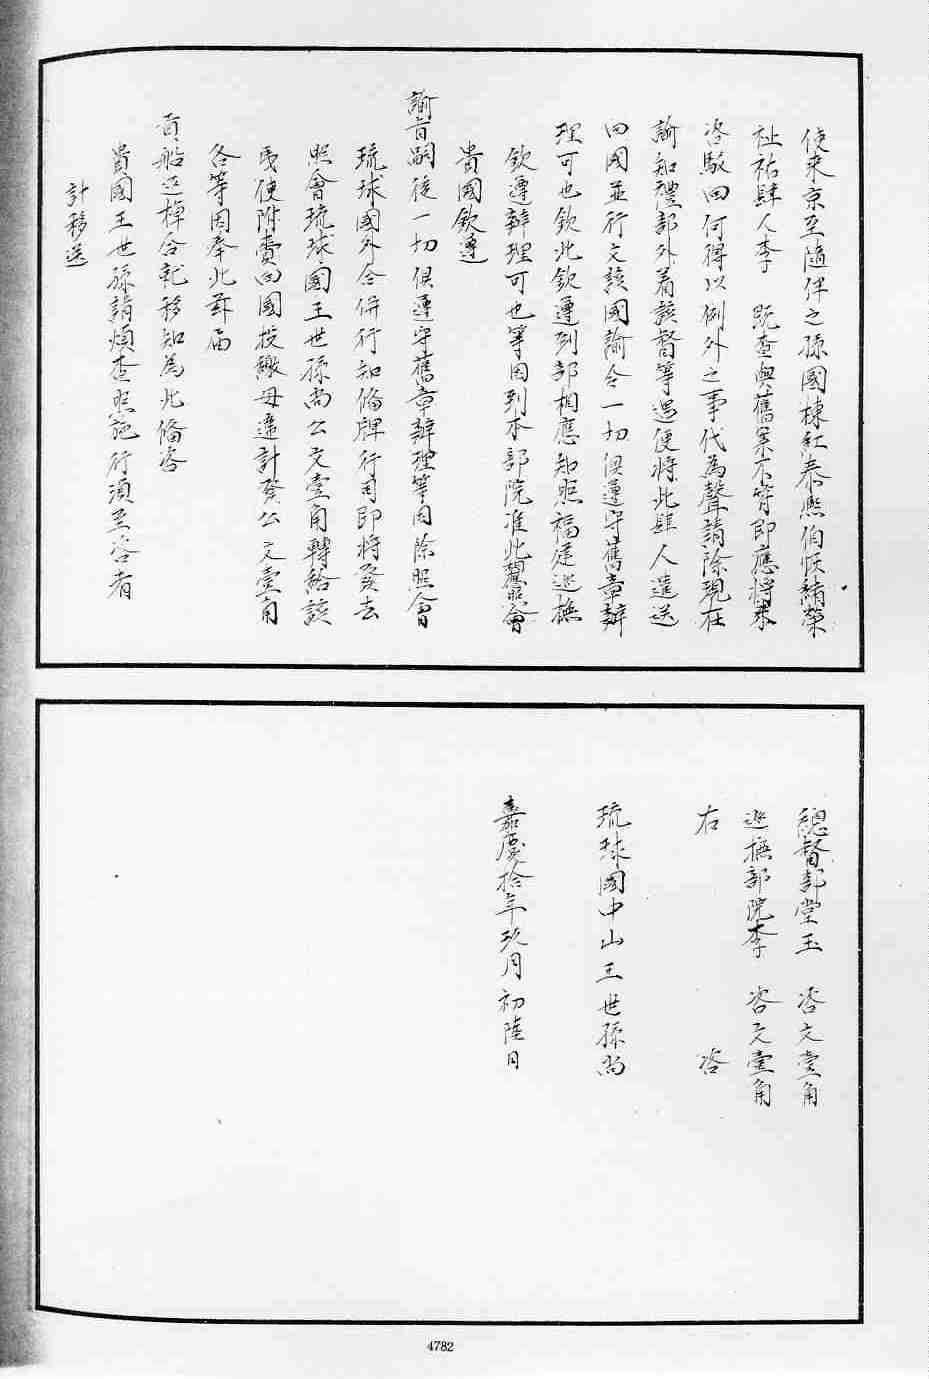 使來京至隨伴之孫國棟紅泰熙伯恢緒榮
祉祐肆人李　既查與舊案不符即應將李
咨駁回何得以例外之事代為聲請除現在
諭知禮部外着該督等遇便將此肆人遣送
回國並行文該國諭令一切俱遵守舊章辦
理可也欽此欽遵到部相應知照福建巡撫
欽遵辦理可也等因到本部院准此擬照會
貴國欽遵
諭旨嗣後一切俱遵守舊章辦理等因除照會
琉球國外合併行知備牌行司即將發去
照會琉球國王世孫尚公文壹角轉給該
夷使附賫回國投繳毋違計發公文壹角
各等因奉此茲届
貢船返棹合就移知為此備咨
貴國王世孫請煩查照施行須至咨者
計移送
總督部堂玉　咨文壹角
巡撫部院李　咨文壹角
右　咨
琉球國中山王世孫尚
嘉慶拾年玖月初陸日
4782